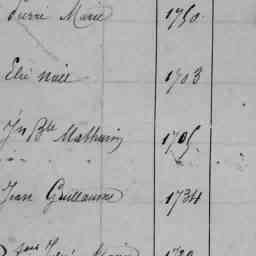 Pierre Marie 1750.
Elie Noël 1703
Jn Bte Mathurin 1705.
" "
Jean Guillaume 1734